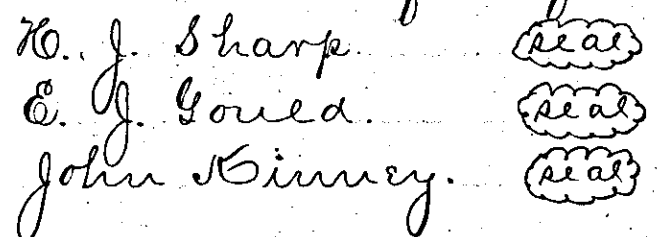 H. J. Sharp. seal
E. J. Gould. seal
John Kinney. seal